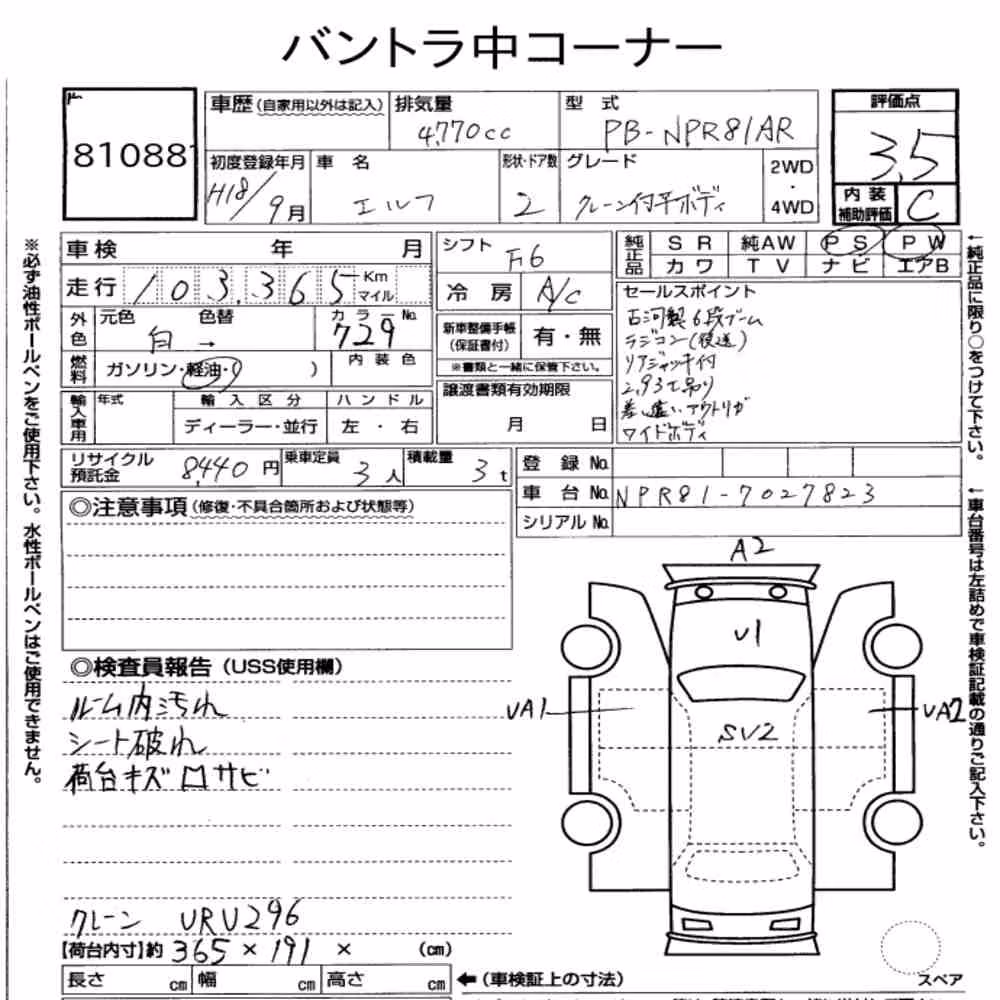 バントラ中コーナー
81088
車歴(自家用以外は記入) 排気量 4,770cc 型式 PB-NPR81AR 評価点 3.5
初度登録年月 H18/9月 車名 エルフ 形状・ドア数 2 グレード クレーン付平ボディ 2WD・4WD 内装補助評価 C
車検 年 月
走行 103,365 Km マイル
シフト F6
冷房 A/C
純正品 SR 純AW PS PW
カワ TV ナビ エアB
外色 元色 白 色替 → カラーNo. 729
燃料 ガソリン・軽油・( ) 内装色
新車整備手帳(保証書付) 有・無
※書類と一緒に保管下さい。
セールスポイント
古河製6段ブーム
ラジコン(後送)
リアジャッキ付
2,93t吊り
差し違いアウトリガ
ワイドボディ
輸入車用 年式 輸入区分 ハンドル
ディーラー・並行 左・右
譲渡書類有効期限
月 日
リサイクル預託金 8,440円 乗車定員 3人 積載量 3t
登録No.
車台No. NPR81-7027823
シリアルNo.
◎注意事項(修復・不具合箇所および状態等)
◎検査員報告(USS使用欄)
ルーム内汚れ
シート破れ
荷台キズ凹サビ
クレーン URV296
【荷台内寸】約 365×191× (cm)
長さ cm 幅 cm 高さ cm ←(車検証上の寸法)
A2
U1
UA1
SV2
UA2
スペア
※必ず油性ボールペンをご使用下さい。水性ボールペンはご使用できません。
←純正品に限り○をつけて下さい。
←車台番号は左詰めで車検証記載の通りご記入下さい。